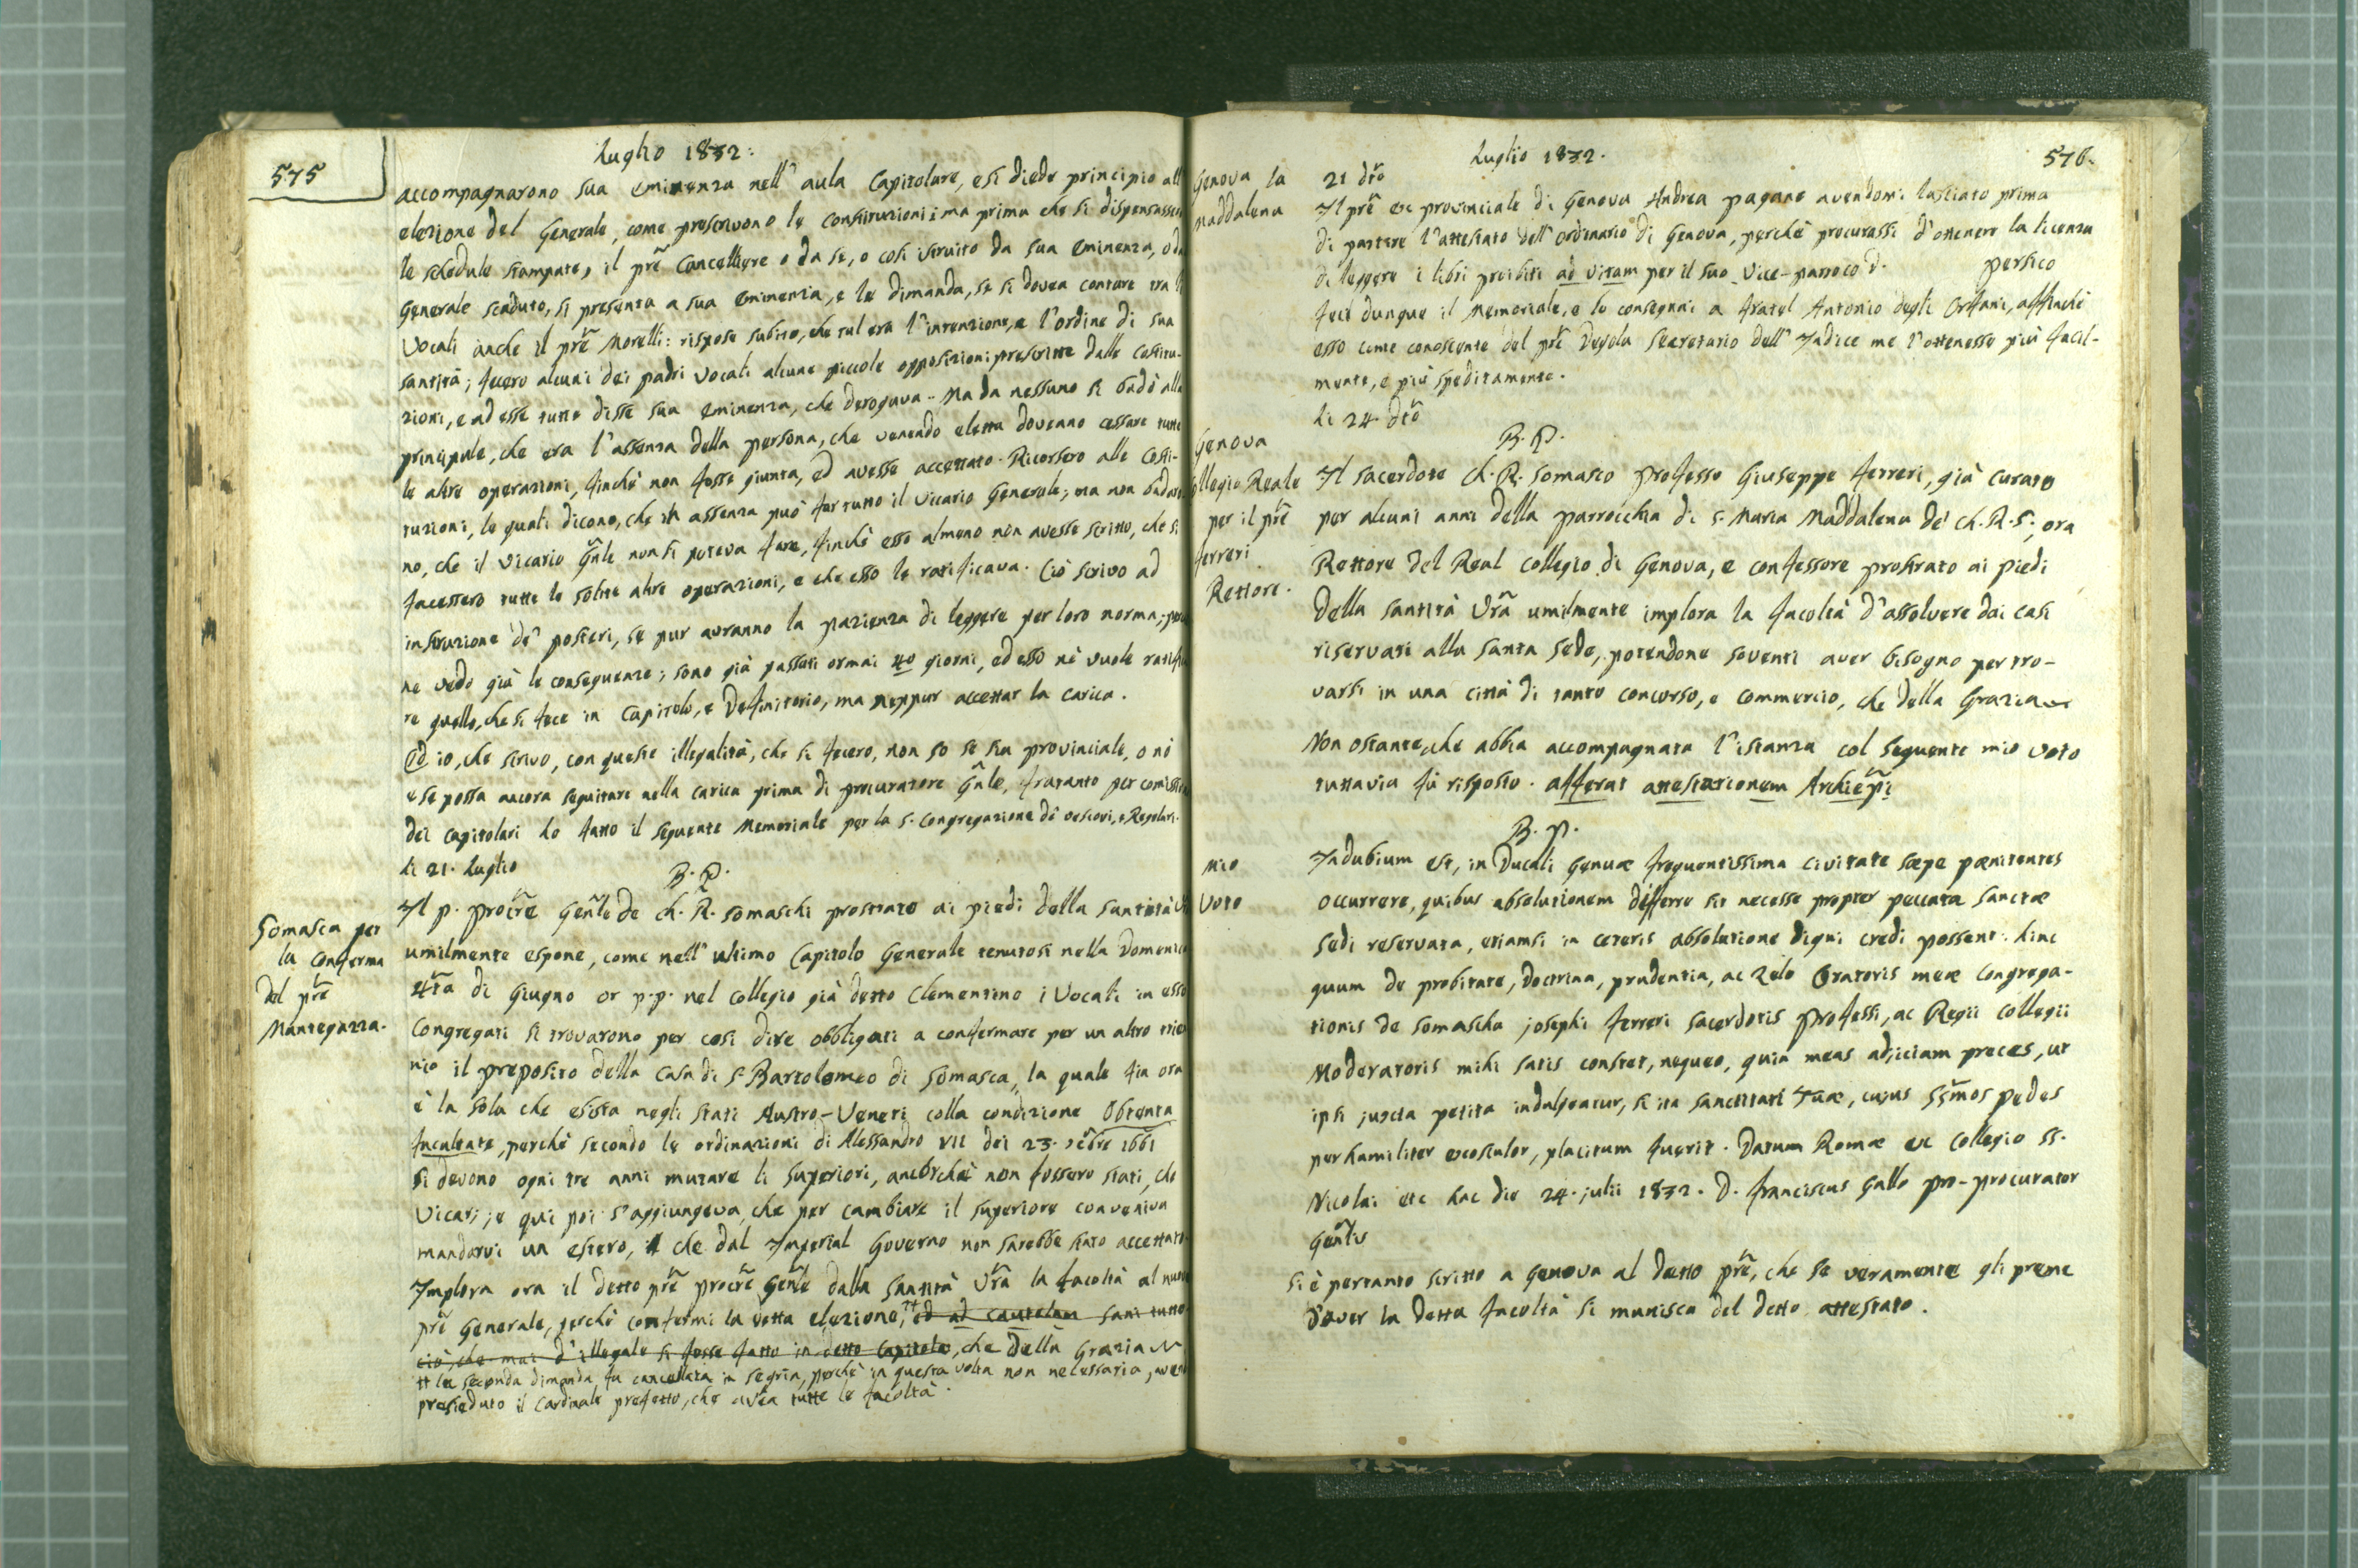 575
Luglio 1832.
accompagnarono sua eminenza nell' aula Capitolare, e si diede principio all
elezione del Generale, come prescrivono le constituzioni: ma prima che si dispensasser
le schedule stampate, il prē Cancelliere o da se, o così istruito da sua eminenza, o da
Generale scaduto, si presenta a sua eminenza, e le dimanda, se si dovea contare tra li
Vocali anche il prē Morelli: rispose subito, che tal era l'intenzione, e l'ordine di sua
santità; fecero alcuni dei padri Vocali alcune piccole opposizioni prescritte dalle Costitu-
zioni, e ad esse tutte disse sua eminenza, che derogava - Ma da nessuno si badò alla
principale, che era l'assenza della persona, che venendo eletta doveano cessare tutte
le altre operazioni, finchè non fosse giunta, ed avesse accettato. Ricorsero alle Costi-
tuzioni, le quali dicono, che in assenza può far tutto il Vicario Generale; ma non badaro
no, che il Vicario Gnle non si poteva fare, finchè esso almeno non avesse scritto, che si
facessero tutte le solite altre operazioni, e che esso le ratificava. Ciò scrivo ad
instruzione de' posteri, se pur avranno la pazienza di leggere per loro norma;
ne vedo già le conseguenze; sono già passati ormai 40 giorni, ed esso nè vuole ratifica
re quello, che si fece in Capitolo, e Definitorio, ma neppur accettar la carica.
Ed io, che scrivo, con queste illegalità, che si fecero, non so se sia provinciale, o nò
e se possa ancora seguitare nella carica prima di procuratore Gnle, frattanto per comissio
dei capitolari ho fatto il seguente Memoriale per la S. Congregazione de' Vescovi, e Regolari.
li 21. Luglio
B. P.
Somasca per
la Conferma
del prē
Mantegazza.
Il p. procrē Genle de Ch. R. Somaschi prostrato ai piedi della Santità V
umilmente espone, come nell' ultimo Capitolo Generale tenutosi nella Domenica
4ta di Giugno or p.p. nel collegio già detto Clementino i Vocali in esso
Congregati si trovarono per così dire obbligati a confermare per un altro trien
nio il preposito della Casa di S. Bartolomeo di Somasca, la quale fin ora
è la sola che esista negli stati Austro-Veneti colla condizione Obtenta
facultate, perchè secondo le ordinazioni di Alessandro VII dei 23. 1661
si devono ogni tre anni mutare li Superiori, ancorchè non fossero stati, che
Vicarj; e qui poi s'aggiungeva, che per cambiare il superiore conveniva
mandarvi un estero, che dal Imperial Governo non sarebbe stato accettato.
Implora ora il detto prē procrē Genle dalla Santità Vrā la facoltà al nuovo
prē Generale, perchè confermi la detta elezione, †† ed ad cautelam sani tutto
ciò, che mai d'illegale si fosse fatto in detto Capitolo, che della Grazia
†† la seconda dimanda fu cancellata in segria, perchè in questa volta non necessaria, aven
presieduto il Cardinale prefetto, che avea tutte le facoltà.
Luglio 1832.
576.
Genova la
Maddalena
21 dtō
Il prē ex provinciale di Genova Andrea pagano avendomi lasciato prima
di partire l'attestato dell' ordinario di Genova, perchè procurassi d'ottenere la licenza
di leggere i libri proibiti ad vitam per il suo Vice-parroco d. persico
feci dunque il Memoriale, e lo consegnai a fratel Antonio degli Orfani, affinchè
esso come conoscente del prē Degola Secretario dell' Indice me l'ottenesse più facil-
mente, e più speditamente.
li 24. dtō
B. P.
Genova
ollegio Reale
per il prē
ferreri
Rettore.
Il sacerdote Ch. R. somasco professo Giuseppe ferreri, già curato
per alcuni anni della parrocchia di S. Maria Maddalena de' Ch. R. S; ora
Rettore del Real collegio di Genova, e confessore prostrato ai piedi
Della santità Vrā umilmente implora la facoltà d'assolvere dai casi
riservati alla Santa Sede, potendone soventi aver bisogno per tro-
varsi in una città di tanto concorso, e commercio, che della Grazia
Non ostante, che abbia accompagnata l'istanza col seguente mio voto
tuttavia fù risposto. afferat attestationem Archiēpi
B. P.
mio
Voto
Indubium est, in Ducali Genuæ frequentissima civitate sæpe pænitentes
occurrere, quibus absolutionem differre sit necesse propter peccata sanctæ
Sedi reservata, etiamsi in ceteris absolutione digni credi possent. hinc
quum de probitate, Doctrina, prudentia, ac Zelo Oratoris meæ Congrega-
tionis de Somascha josephi ferreri sacerdotis professi, ac Regii collegii
Moderatoris mihi satis constet, nequeo, quin meas adjiciam preces, ut
ipsi juxta petita indulgeatur, si ita sanctitati Tuæ, cujus SSmos pedes
perhumiliter exosculor, placitum fuerit. Datum Romæ ex Collegio SS.
Nicolai etc hac die 24. julii 1832. D. franciscus Gallo pro-procurator
Genlis
Si è pertanto scritto a Genova al detto prē, che se veramente gli preme
d'aver la detta facoltà si munisca del detto attestato.